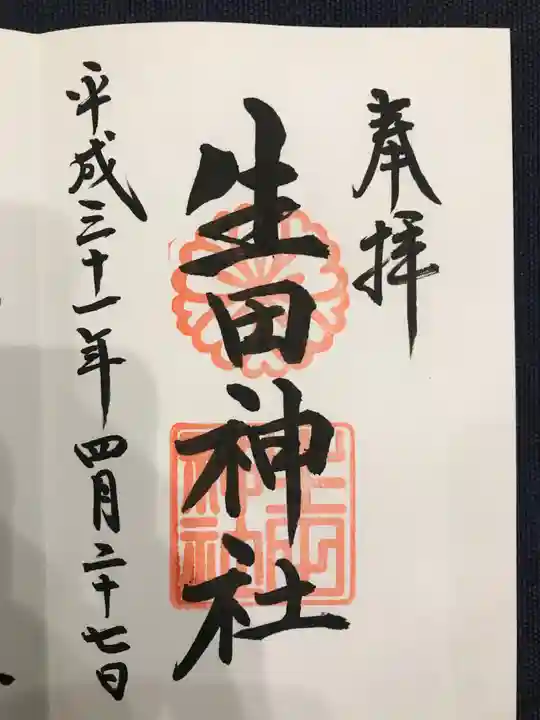 奉拝
生田神社
平成三十一年四月二十七日
生田
神社